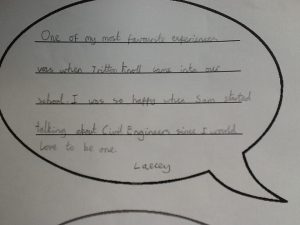 One of my most favourite experiences
was when Triton Knoll came into our
school. I was so happy when Sam started
talking about Civil Engineers since I would
love to be one.